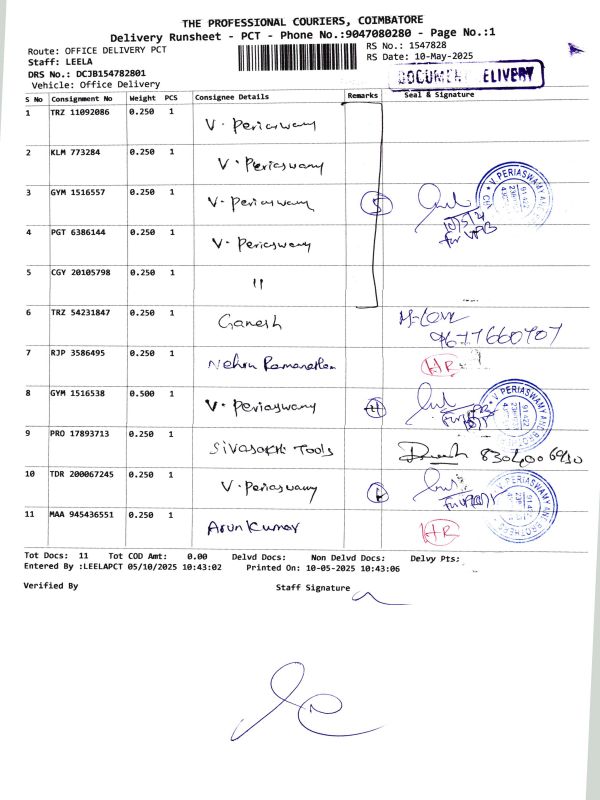 THE PROFESSIONAL COURIERS, COIMBATORE
Delivery Runsheet - PCT - Phone No.:9047080280 - Page No.:1
Route: OFFICE DELIVERY PCT
RS No.: 1547828
Staff: LEELA
RS Date: 10-May-2025
DRS No.: DCJB154782801
Vehicle: Office Delivery
DOCUMEN ELIVERY
S No Consignment No Weight PCS Consignee Details Remarks Seal & Signature
1 TRZ 11092086 0.250 1 V. Periaswamy
2 KLM 773284 0.250 1 V. Periaswamy
3 GYM 1516557 0.250 1 V. Periaswamy 5
V PERIASWAMY AND
4 PGT 6386144 0.250 1 V. Periaswamy
5 CGY 20105798 0.250 1 "
6 TRZ 54231847 0.250 1 Ganesh
9677660707
7 RJP 3586495 0.250 1 Nehru Ramanathan HR
8 GYM 1516538 0.500 1 V. Periaswamy
V PERIASWAMY AND BRO
9 PRO 17893713 0.250 1 Sivasakthi Tools
10 TDR 200067245 0.250 1 V. Periaswamy
PERIASWAMY AND BROTHERS
11 MAA 945436551 0.250 1 Arun Kumar HR
Tot Docs: 11 Tot COD Amt: 0.00 Delvd Docs: Non Delvd Docs: Delvy Pts:
Entered By :LEELAPCT 05/10/2025 10:43:02 Printed On: 10-05-2025 10:43:06
Verified By Staff Signature